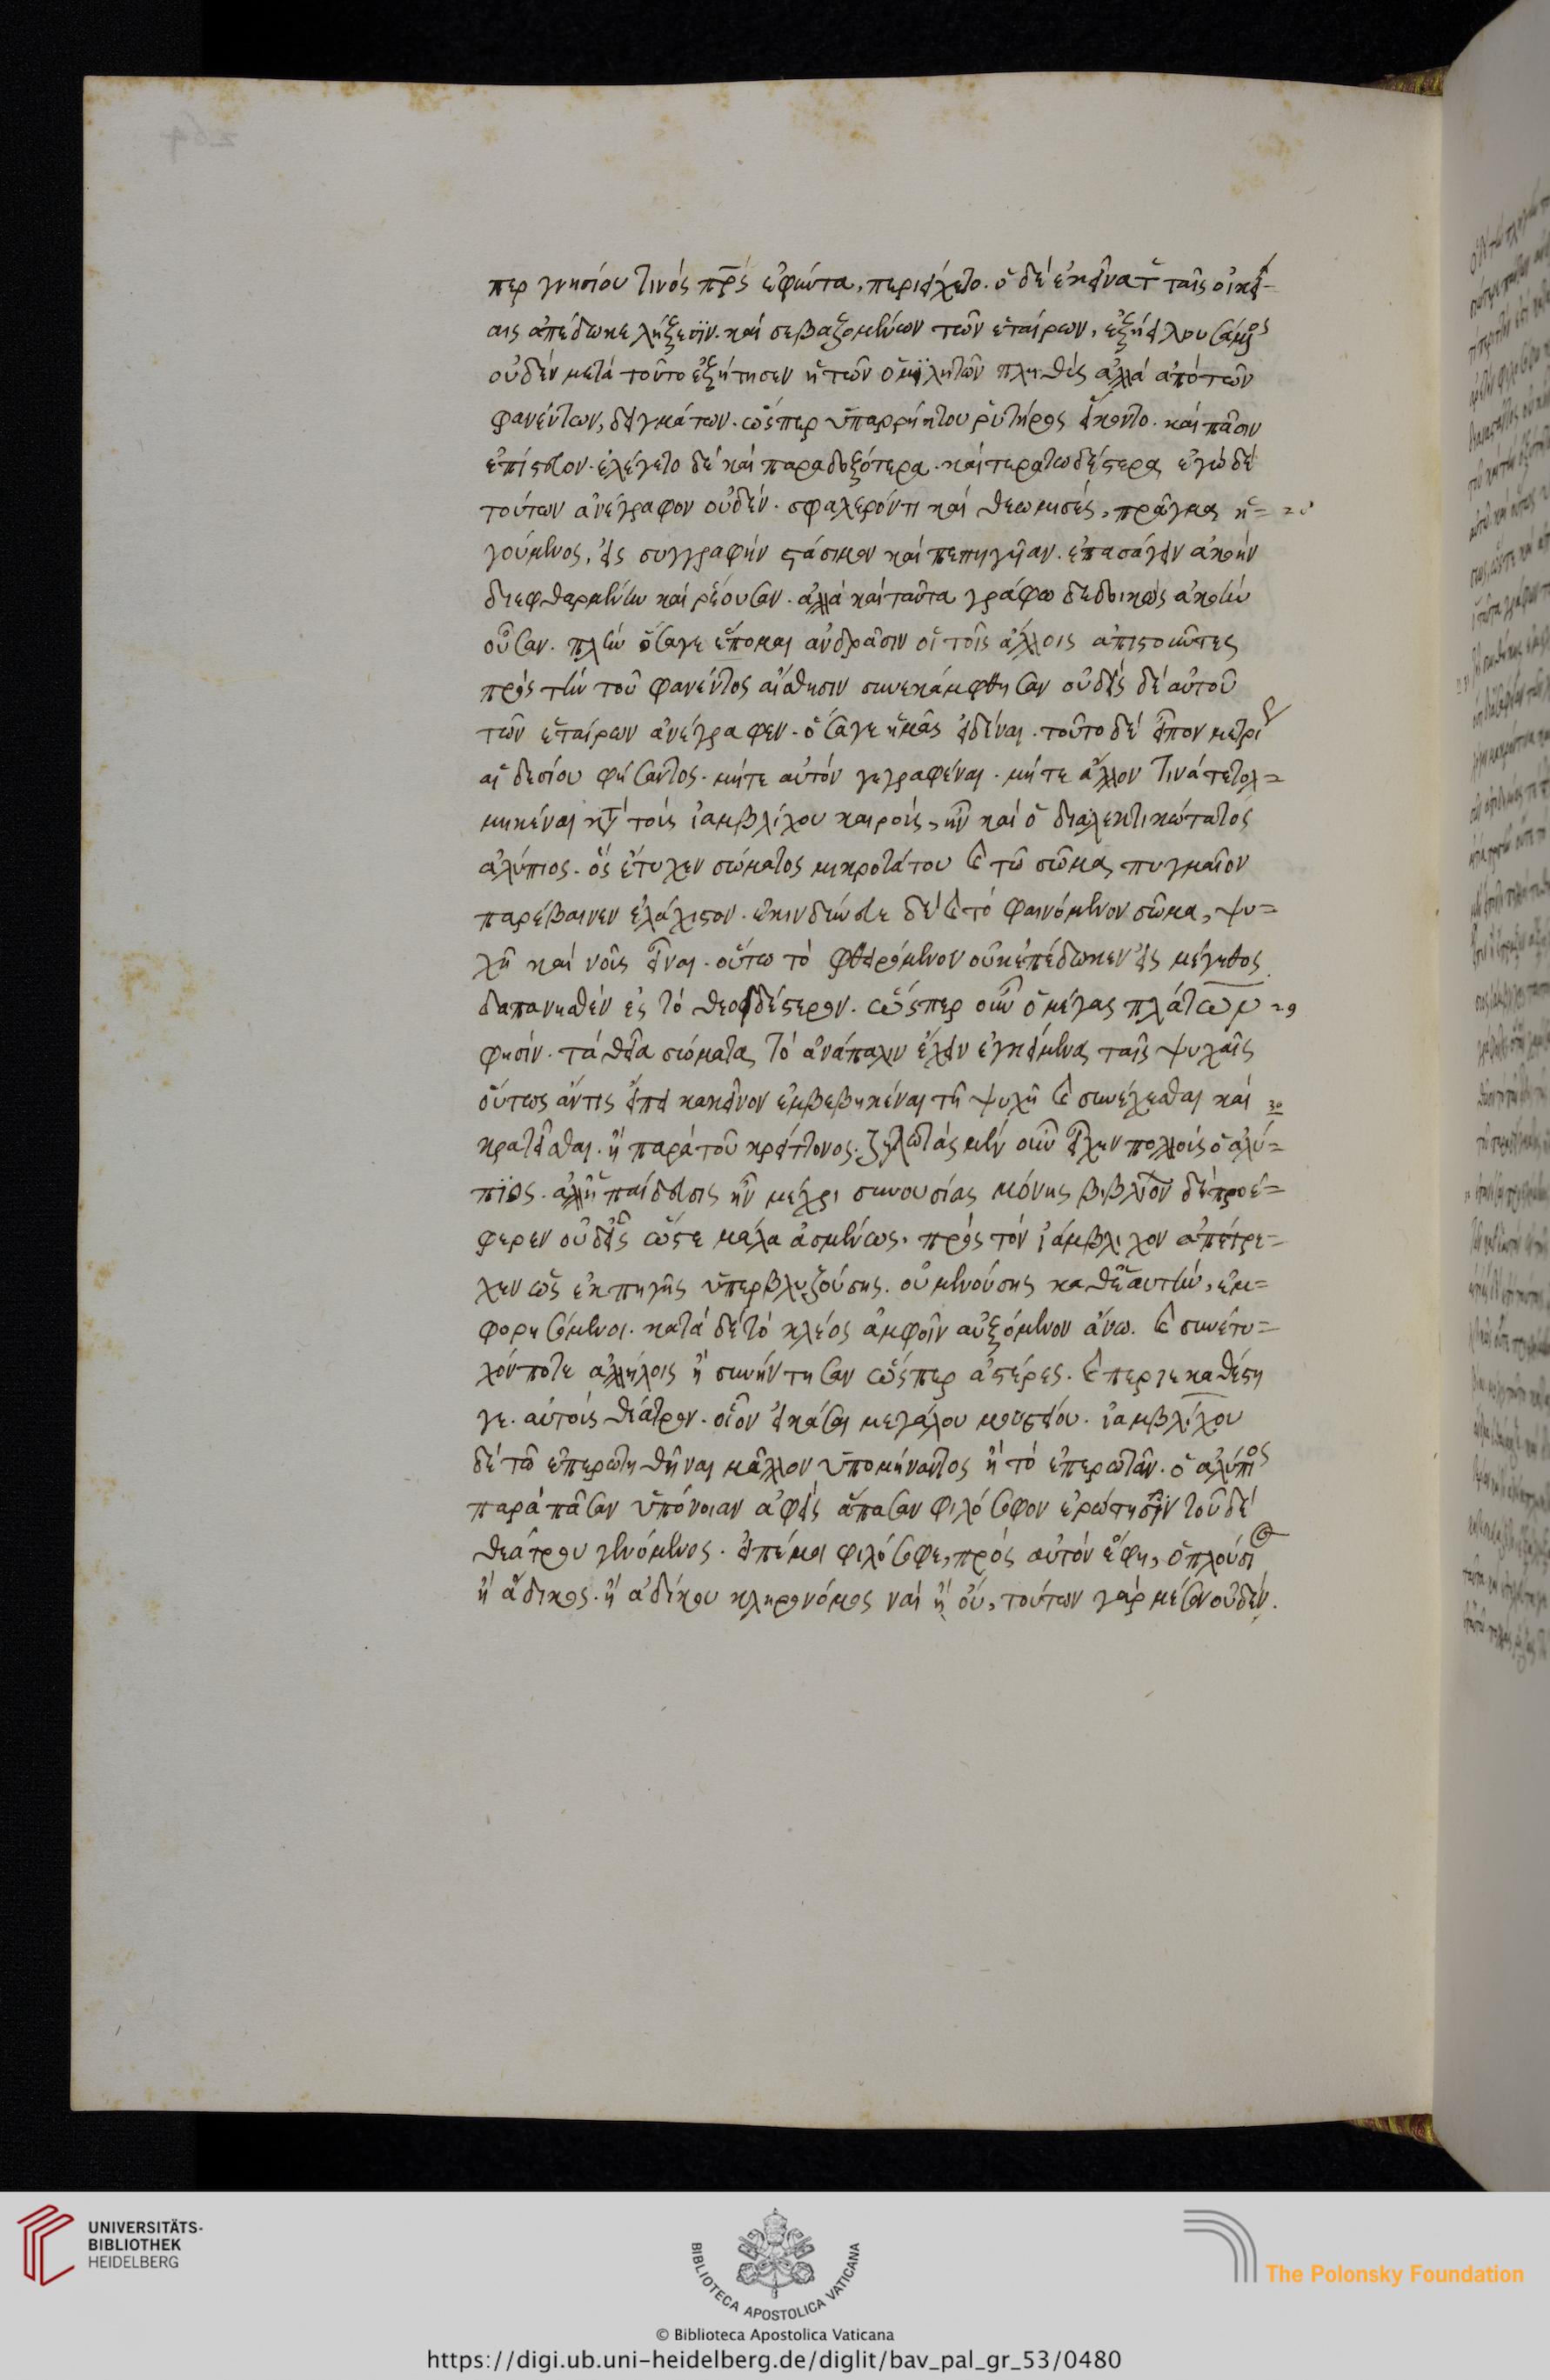 περ γνησίου τινός πρς ἐφῶντα, περιείχετο. ὁ δὲ ἐκεῖνα τ ταῖς οἰκεί-
αις ἀπέδωκε λήξεσϊν. καὶ σεβαζομένων τῶν ἑταίρων, ἐξήει λουσάμενος
οὐδὲν μετὰ τοῦτο ἐξήτησεν ἡ τῶν ὁμϊλητῶν πληθύς ἀλλὰ ἀπὸ τῶν
φανέντων, δειγμάτων. ὥσπερ ὑπαρρήκτου ῥυτῆρος εἵκοντο. καὶ πᾶσιν
ἐπίστευον. ἐλέγετο δὲ καὶ παραδοξότερα. καὶ τερατωδέστερα ἐγὼ δὲ
τούτων ἀνέγραφον οὐδέν. σφαλερόν τι καὶ θεομισές, πρᾶγμα ἡ=
γούμενος, εἰς συγγραφὴν στάσιμον καὶ πεπηγῆαν. ἐπασάγειν ἀκοὴν
διεφθαρμένην καὶ ρέουσαν. ἀλλὰ καὶ ταῦτα γράφω δεδοικὼς ἀκοὴν
οὖσαν. πλὴν ὅσαγε ἕπομαι ἀνδράσιν οἳ τοῖς ἄλλοις ἀπιστοῦντες
πρὸς τὴν τοῦ φανέντος αἴσθησιν συνεκάμφθησαν οὐδεὶς δὲ αὐτοῦ
τῶν ἑταίρων ἀνέγραφεν. ὅσαγε ἡμᾶς εἰδέναι. τοῦτο δὲ εἶπον μετρί
αἰδεσίου φήσαντος. μήτε αὐτὸν γεγραφέναι. μήτε ἄλλον τινὰ τετολ=
μηκέναι κτ τοὺς ἰαμβλίχου καιροὺς, ἦν καὶ ὁ διαλεκτικώτατος
ἀλύπιος. ὃς ἔτυχεν σώματος μικροτάτου καὶ τῶ σῶμα πυγμαῖον
παρέβαινεν ἐλάχιστον. ἐκινδύνευε δὲ καὶ τὸ φαινόμενον σῶμα, ψυ=
χὴ καὶ νοῦς εἶναι. οὕτω τὸ φθειρόμενον οὐκ ἐπέδωκεν εἰς μέγεθος
δαπανηθὲν εἰς τὸ θεοειδέστερον. ὥσπερ οὖν ὁ μέγας πλάτων
φησίν. τὰ θεῖα σώματα τὸ ἀνάπαλιν ἔχειν ἐγκείμενα ταῖς ψυχαῖς
οὕτως ἄν τις εἴπει κακεῖνον ἐμβεβηκέναι τῇ ψυχῇ καὶ συνέχεσθαι καὶ
κρατεῖσθαι. ἢ παρὰ του κρείττονος. ζηλωτὰς μὲν οὖν εἶχεν πολλοὺς ὁ ἀλύ=
πϊος. ἀλλ' ἡ παίδευσις ἦν μέχρι συνουσίας μόνης βιβλίον δὲ προέ=
φερεν οὐδεὶς ὥστε μάλα ἀσμένως. πρὸς τὸν ἰάμβλιχον ἀπέτρε=
χεν ὡς ἐκ πηγῆς ὑπερβλυζούσης. οὐ μενούσης καθ' ἑαυτὴν, ἐμ=
φορησόμενοι. κατὰ δὲ τὸ κλέος ἀμφοῖν αὐξόμενον ἄνω. καὶ συνέτυ=
χόν ποτε ἀλλήλοις ἢ συνήντησαν ὥσπερ ἀστέρες. καὶ περ γε καθέση
γε. αὐτοὺς θέατρον. οἷον εἰκάσαι μεγάλου μουσείου. ἰαμβλίχου
δὲ τῶ ἐπερωτηθῆναι μᾶλλον ὑπομήναντος ἢ τὸ ἐπερωτᾶν. ὁ ἀλύπιος
παρὰ πᾶσαν ὑπόνοιαν ἀφεὶς ἅπασαν φιλόσοφον ἐρώτησϊν τοῦ δὲ
θεάτρου γενόμενος. εἰπέ μοι φιλόσοφε, πρὸς αὐτὸν ἔφη, ὁ πλούσιος
ἢ ἄδικος. ἢ ἀδίκου κληρονόμος ναὶ ἢ οὔ, τούτων γὰρ μέσον οὐδέν.
29
30
UNIVERSITÄTS-
BIBLIOTHEK
HEIDELBERG
BIBLIOTECA APOSTOLICA VATICANA
The Polonsky Foundation
© Biblioteca Apostolica Vaticana
https://digi.ub.uni-heidelberg.de/diglit/bav_pal_gr_53/0480